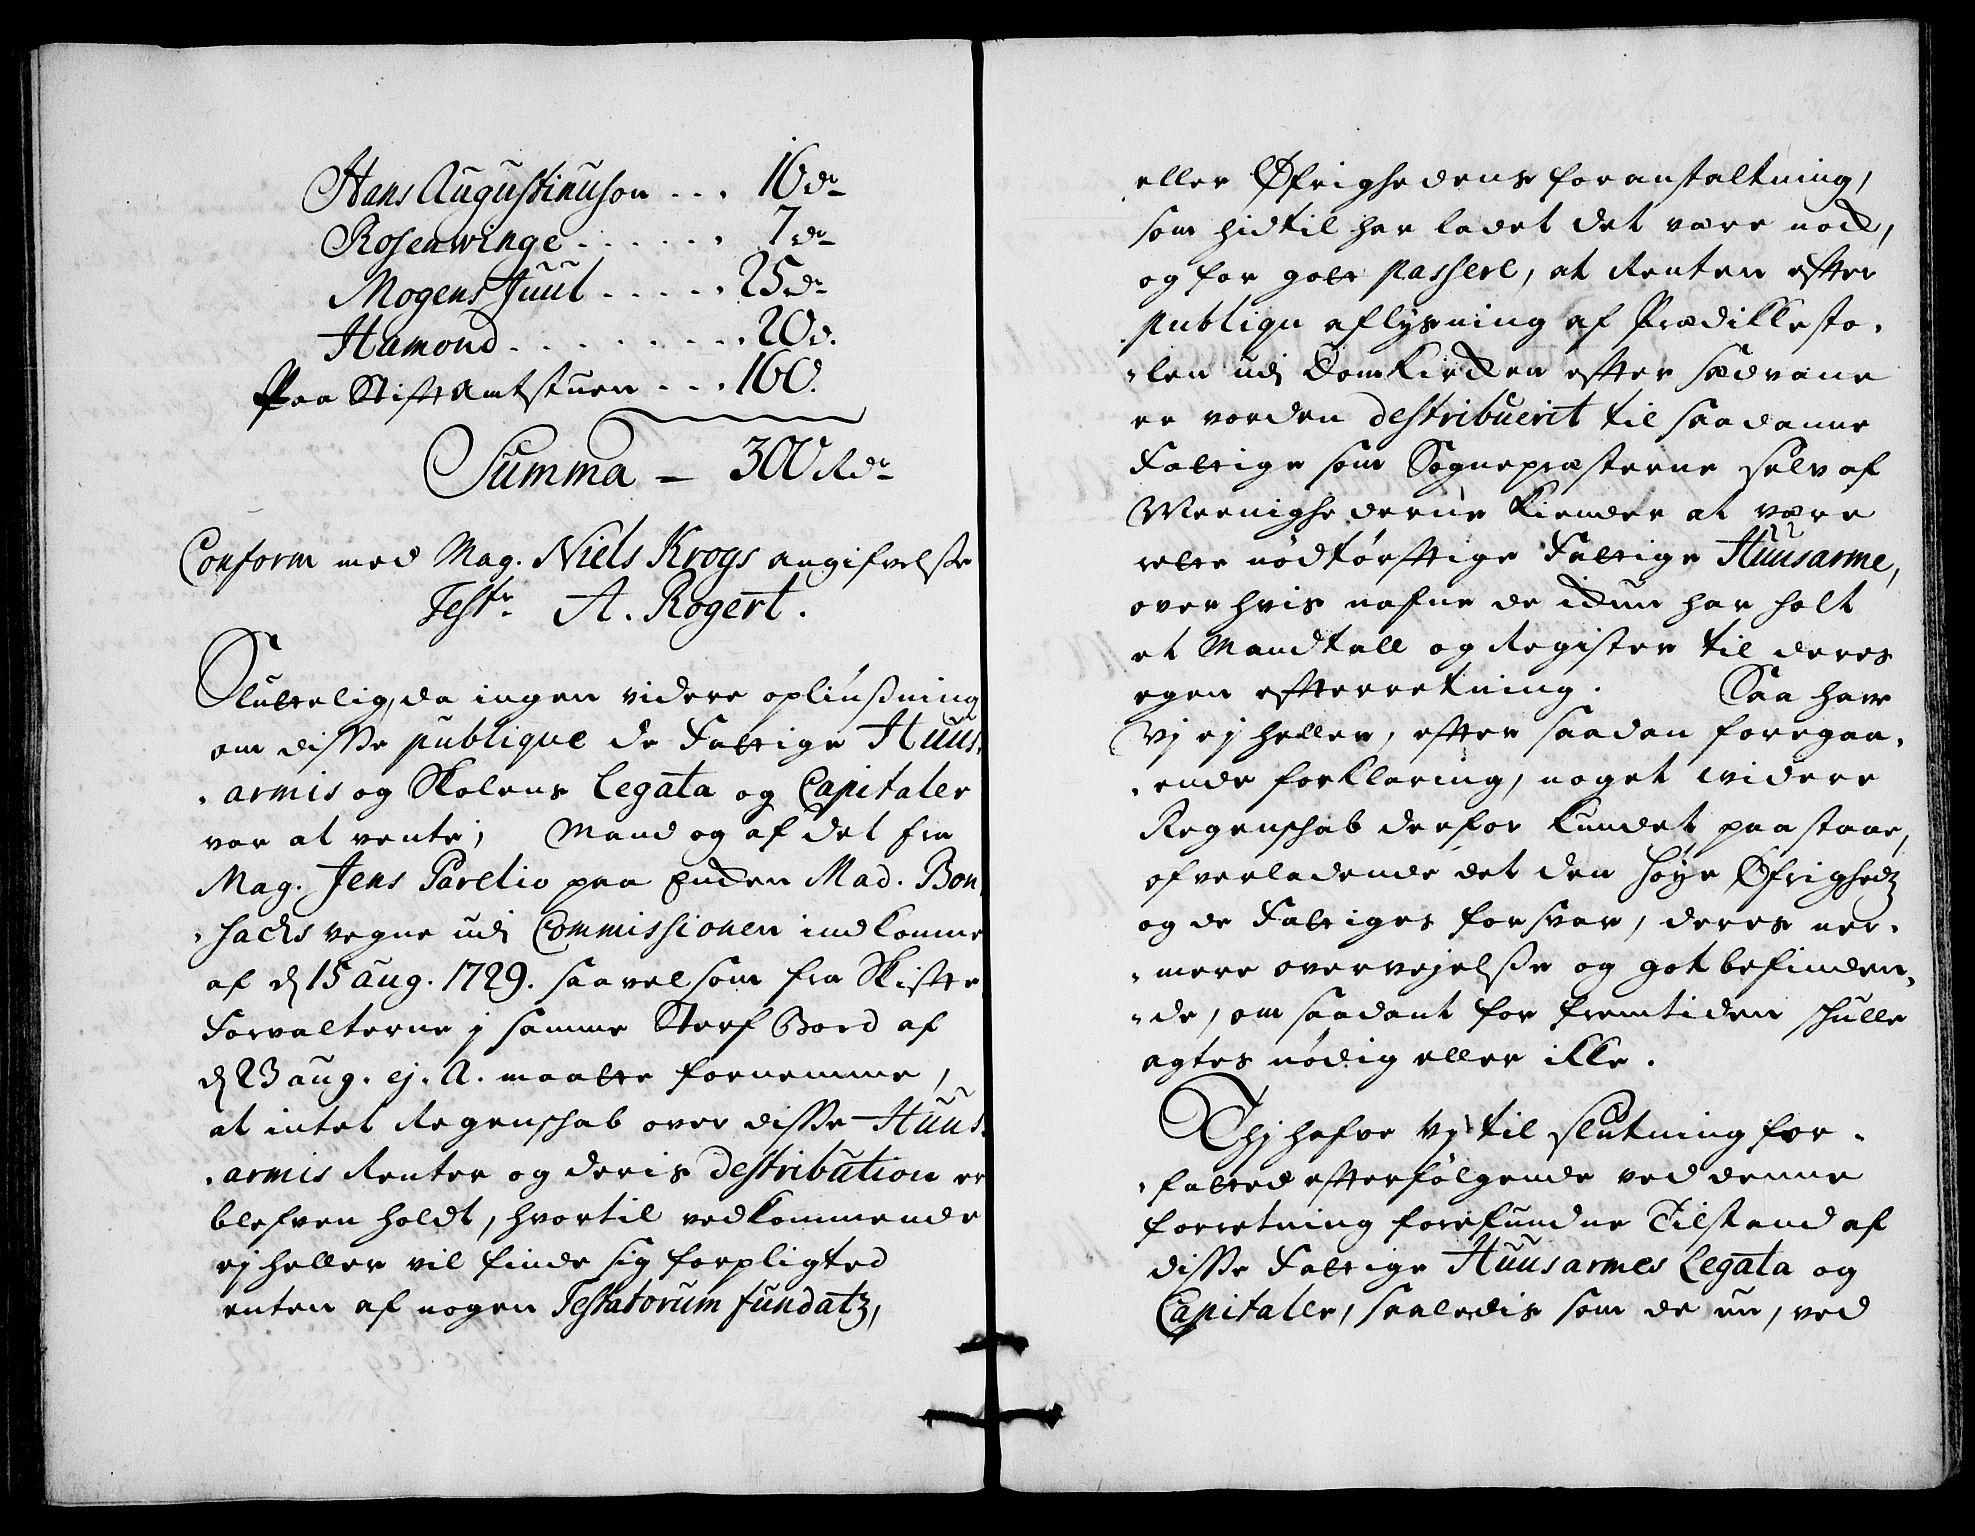 Hans Augustinuson . . . 16 dr
Rosenwinge . . . . . . 7 dr
Mogens Juul . . . . . 25 dr
Hamond . . . . . . . . . 20 d.
Paa Stiftamtstuen . . . 160.
Summa — 300 Rdr
Conform med Mag. Niels Krogs angifvelsse
Testr A. Rogert.
Sluttelig, da ingen videre opliusning
om disse publique de Fattige Huus,,
,,armis og Skolens Legata og Capitaler
var at vente; Mand og af det fra
Mag. Jens Parelio paa Enken Mad. Bon,,
,,sachs vegne udj Commissionen indkomne
af d 15 aug. 1729. saavelsom fra Skifte
Forvalterne j samme Sterf Boed af
d 23 aug. ej. A. maatte fornemme,
at intet Regenschab over disse Huus,,
,,armis Renter og deris destribution er
blefven holdt, hvortil vedkommende
ej heller vil finde sig forpligted
enten af nogen Testatorum fundatz,
eller Øfrighedens foranstaltning,
som hidtil har ladet det være nock,
og for gott passere, at Renten efter
publiqu aflysning af Prædikesto,,
,,len udj Domkircken efter sædvane
er vorden destribuerit til saadanne
Fattige som Sognepræsterne selv af
Meenighederne kiender at være
rette nødtørftige Fattige Huusarme,
over hvis nafne de ickun har holt
et Mandtall og Register til deres
egen efterretning. Saa have
Vj ej heller, efter saadan foregaa,,
,,ende forklaring, noget widere
Regenschab derfor kundet paastaae,
ofverladende det den høye Øfrighedz
og de Fattiges forsvar, deres ner,,
,,mere overvejelsse og got befinden,,
,,de, om saadant for fremtiden schulle
agtes nødig eller ikke.
Thj hafve Vj til slutning for,,
,,fatted efterfølgende ved denne
forretning forefundne Tilstand af
disse Fattige Huusarmes Legata og
Capitaler, saaledis som de nu, ved